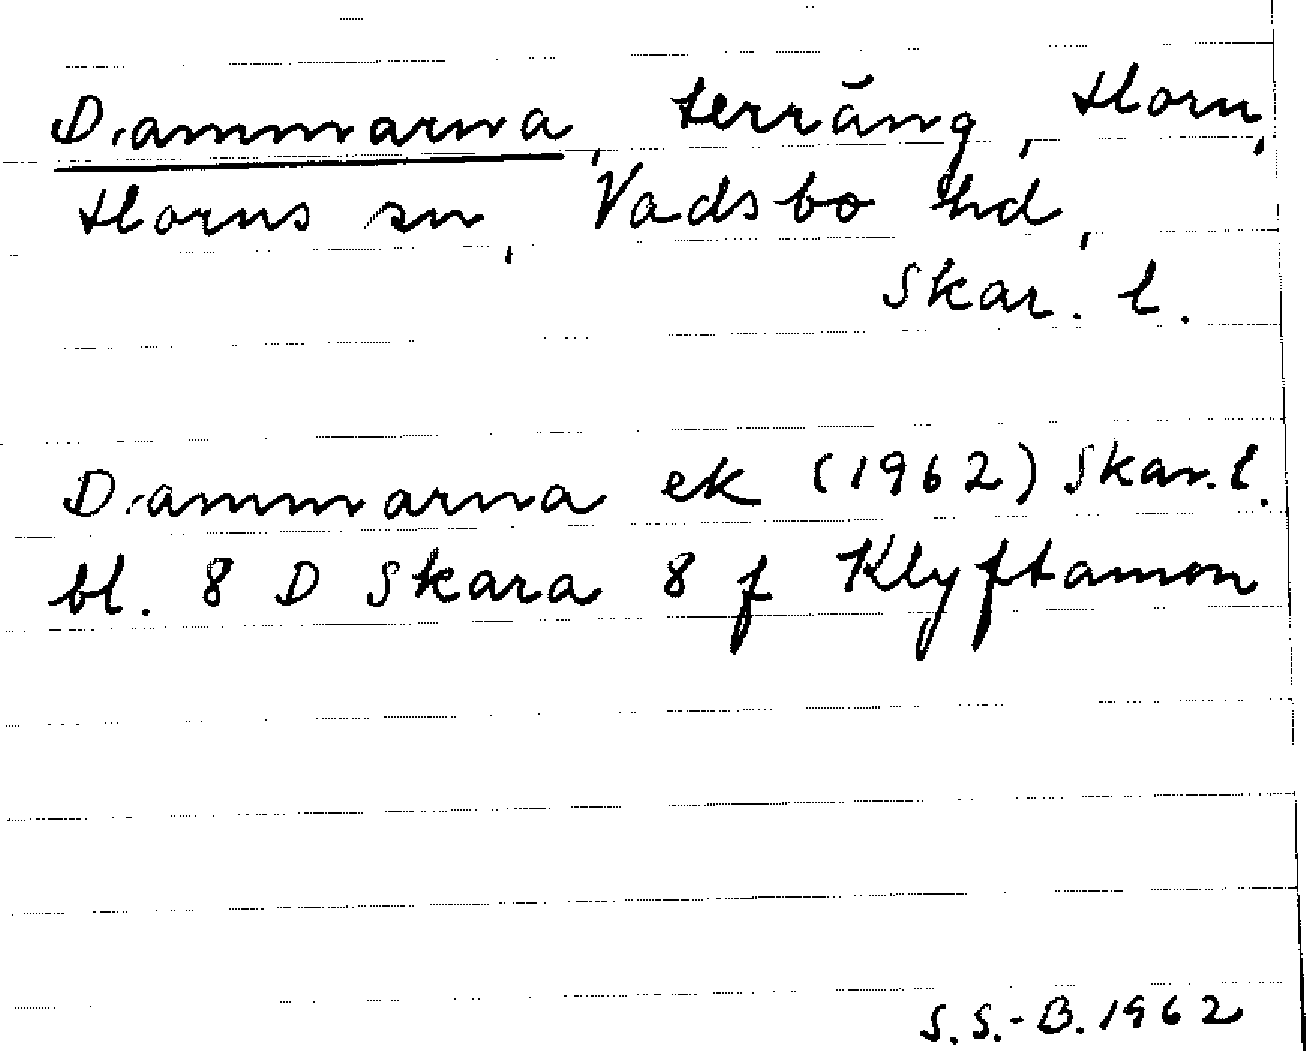 Dammarna, terräng, Horn,
Horns sn, Vadsbo hd,
Skar. l.
Dammarna ek (1962) Skar. l.
bl. 8 D Skara 8 f Klyftamon
S.S.-B. 1962